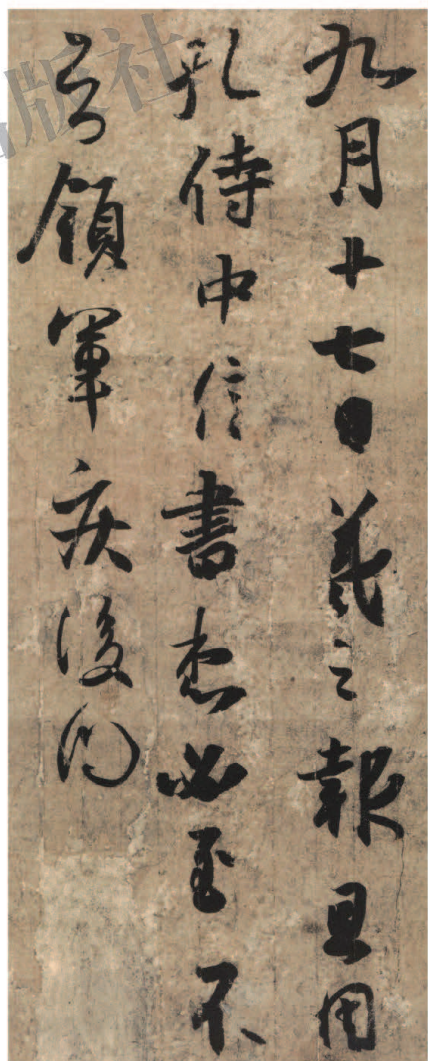 九月十七日羲之報且因
孔侍中信書想必至不
知領軍疾後問
版社